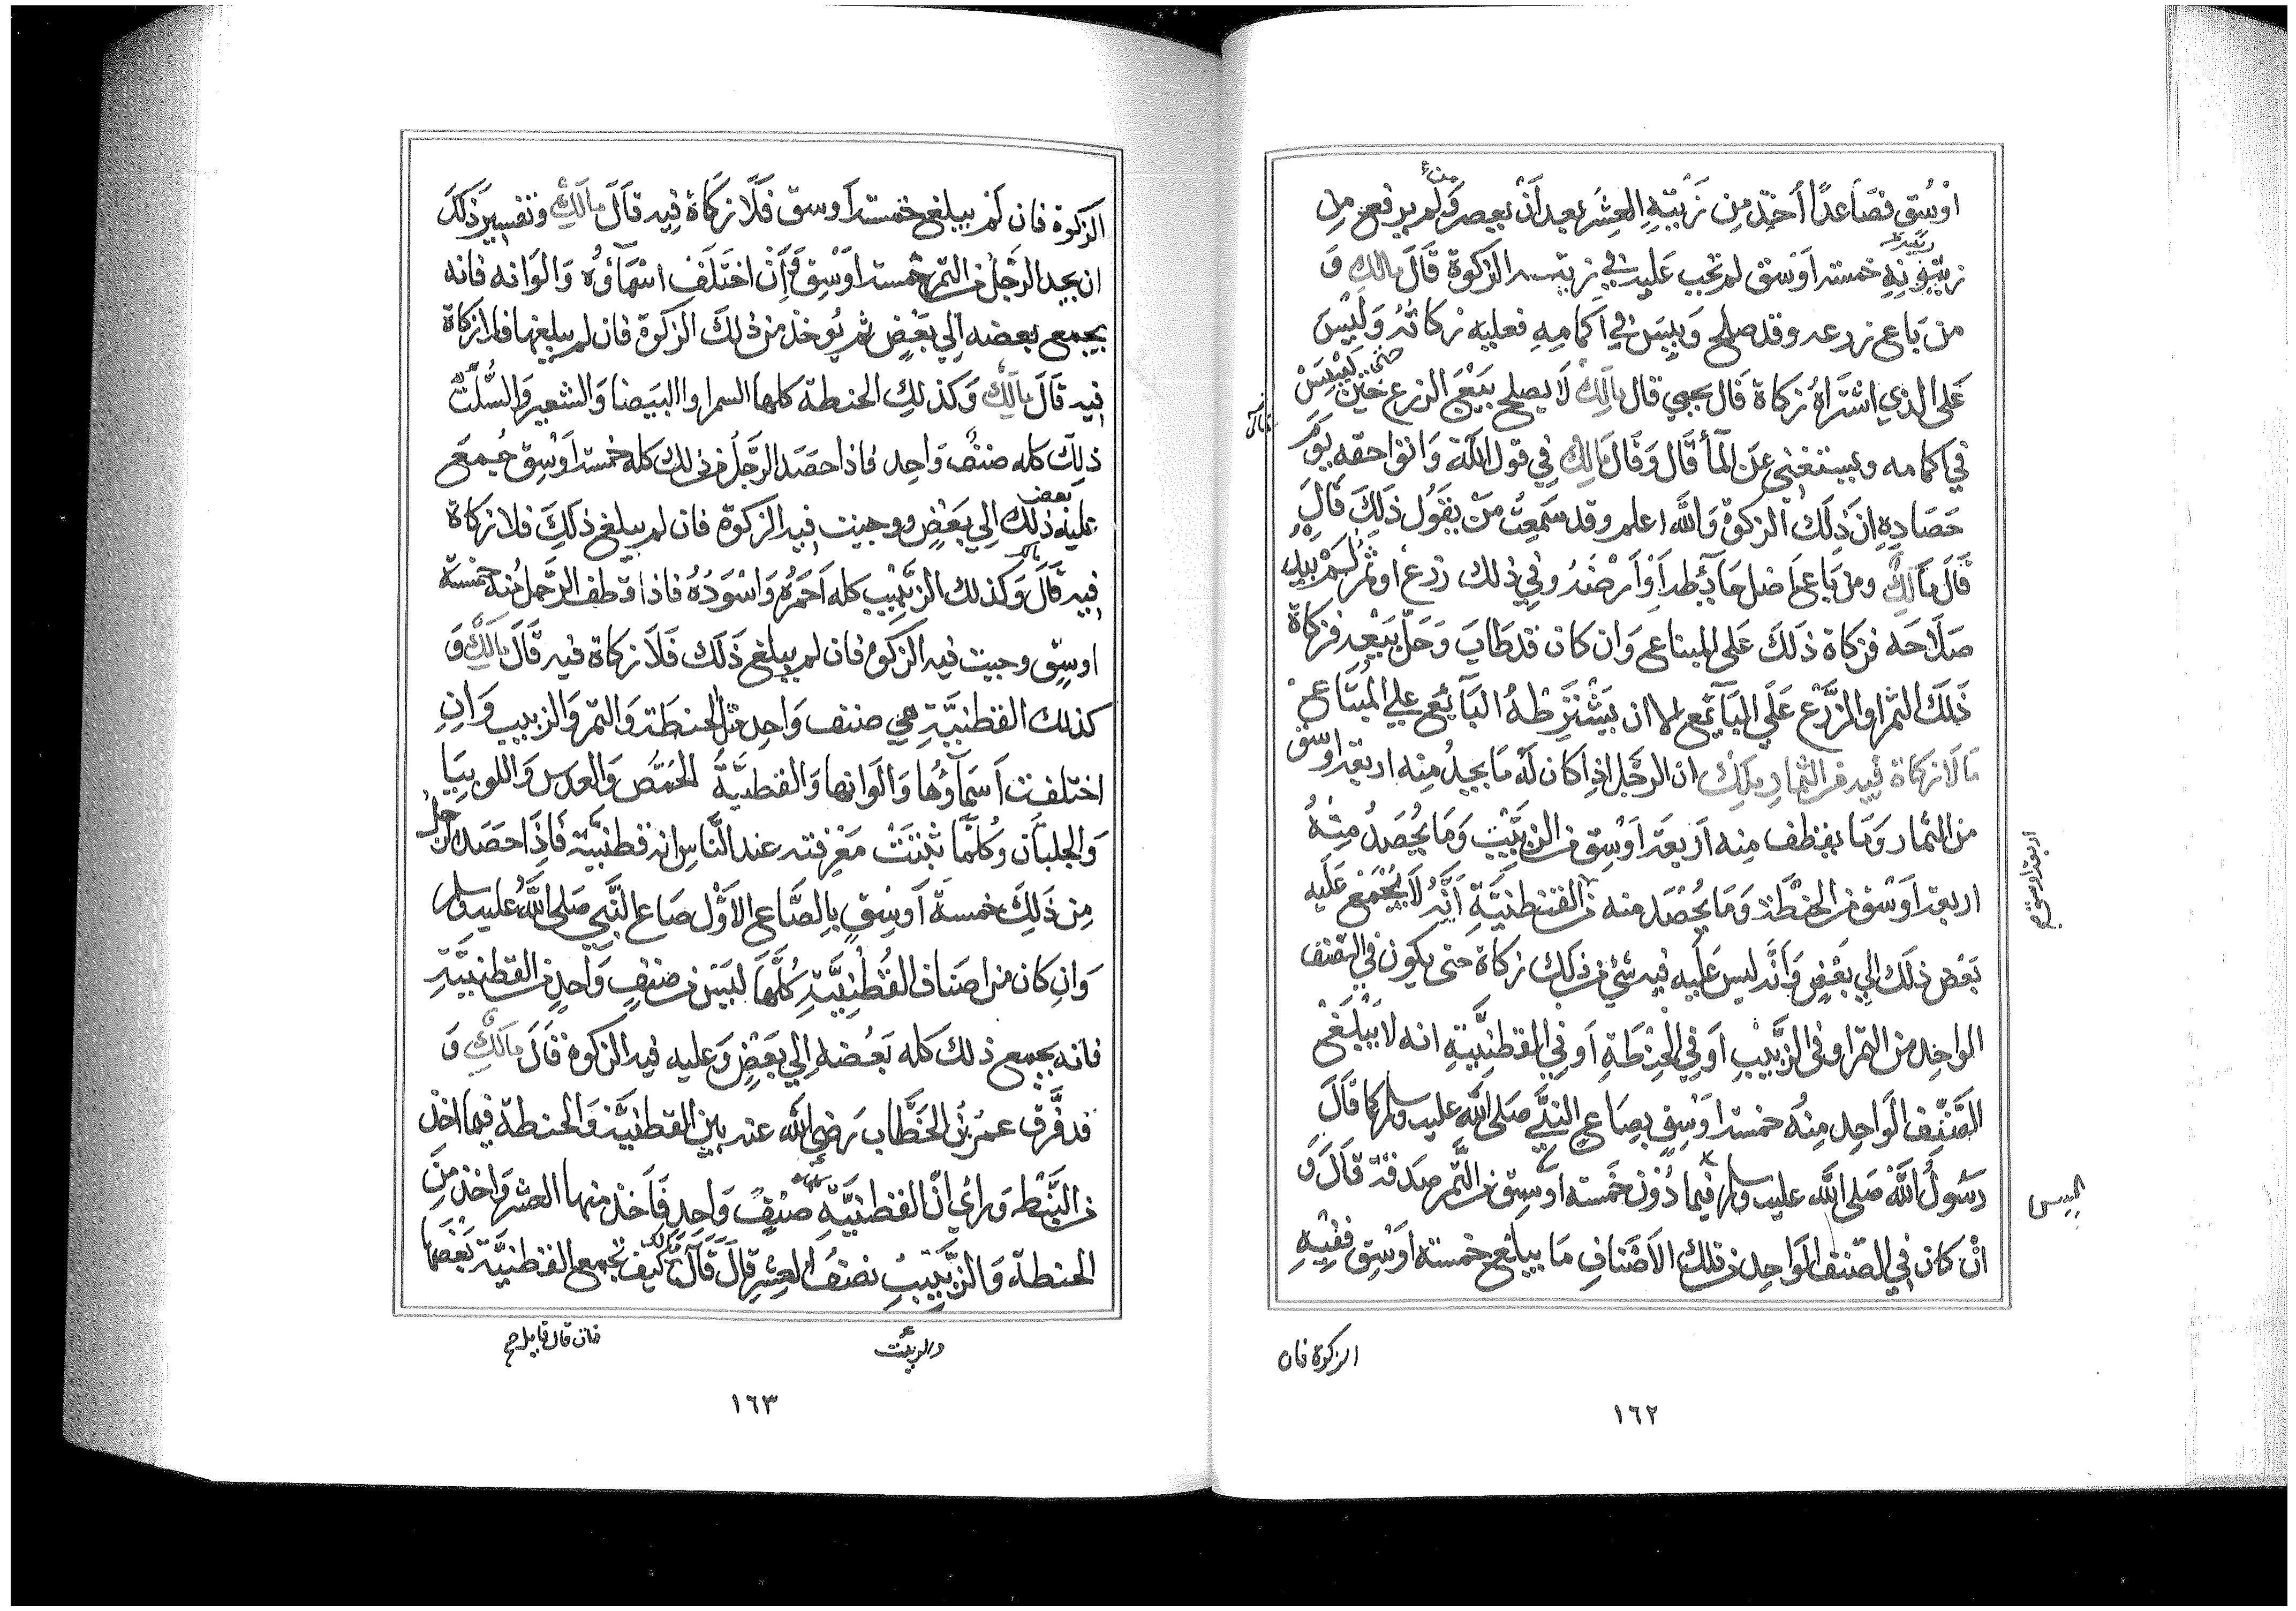 اوسق فصاعدًا أخذ من زيته العشر بعد أن يعصر ومن لم يرفع من
زيتونه خمسة اوسق لم تجب عليه في زيته الزكوة قال مالك و
من باع زرعه وقد صلح ويبس في اكمامه فعليه زكاته وليس
على الذي اشتراه زكاة قال يحيى قال مالك لا يصلح بيع الزرع حتى ييبس
في اكمامه ويستغنى عن المأ قال وقال مالك في قول الله واتوا حقه يوم
حصاده ان ذلك الزكوة والله اعلم وقد سمعت من يقول ذلك قال
قال مالك ومن باع اصل حائطه أو أرضه وفي ذلك زرع او ثمر لم يبد
صلاحه فزكاة ذلك على المبتاع وان كان قد طاب وحل بيعه فزكاة
ذلك الثمر او الزرع على البائع الا ان يشترطه البائع علي المبتاع
مالا زكاة فيه من الثمار مالك ان الرجل اذا كان له ما يجد منه اربعة اوسق
من الثمار وما يقطف منه أربعة أوسق من الزبيب وما يحصد منه
اربعة أوسق من الحنطة وما يحصد منه من القطنية أنه لا يجمع عليه
بعض ذلك الي بعض وأنه ليس عليه فيه شئ من ذلك زكاة حتى يكون في الصنف
الواحد من التمر او في الزبيب أو في الحنطة أو في القطنية انه لا يبلغ
الصنف الواحد منه خمسة اوسق بصاع النبي صلى الله عليه وسلم كما قال
رسول الله صلى الله عليه وسلم فيما دون خمسة اوسق من التمر صدقة قال و
ان كان في الصنف الواحد من تلك الاصناف ما يبلغ خمسة اوسق ففيه
اربعة اوسق صح
ليس
الزكوة فان
١٦٢
الزكوة فان لم يبلغ خمسة أوسق فلا زكاة فيه قال مالك وتفسير ذلك
ان يجد الرجل من التمر خمسة اوسق وإن اختلف اسماؤه والوانه فانه
يجمع بعضه الي بعض ثم يوخذ من ذلك الزكوة فان لم يبلغها فلا زكاة
فيه قال مالك وكذلك الحنطة كلها السمرا والبيضا والشعير والسلت
ذلك كله صنف واحد فاذا حصد الرجل من ذلك كله خمسة اوسق جمع
عليه بعض ذلك الي بعض ووجبت فيه الزكوة فان لم يبلغ ذلك فلا زكاة
فيه قال مالك وكذلك الزبيب كله احمره واسوده فاذا قطف الرجل منه خمسة
اوسق وجبت فيه الزكوة فان لم يبلغ ذلك فلا زكاة فيه قال مالك و
كذلك القطنية هي صنف واحد مثل الحنطة والتمر والزبيب وان
اختلفت أسماؤها والوانها والقطنية الحمص والعدس واللوبيا
والجلبان وكلما ثبتت معرفته عند الناس انه قطنية فاذا حصد الرجل
من ذلك خمسة أوسق بالصاع الاول صاع النبي صلى الله عليه وسلم
وان كان من اصناف القطنية كلها ليس من صنف واحد من القطنية
فانه يجمع ذلك كله بعضه الي بعض وعليه فيه الزكوة قال مالك و
قد فرق عمر بن الخطاب رضي الله عنه بين القطنية والحنطة فيما اخذ
من النبط وراي ان القطنية كلها صنف واحد فأخذ منها العشر واخذ من
الحنطة والزبيب نصف العشر قال قال مالك كيف تجمع القطنية بعضها
والزيت
فان قال قايل صح
١٦٣